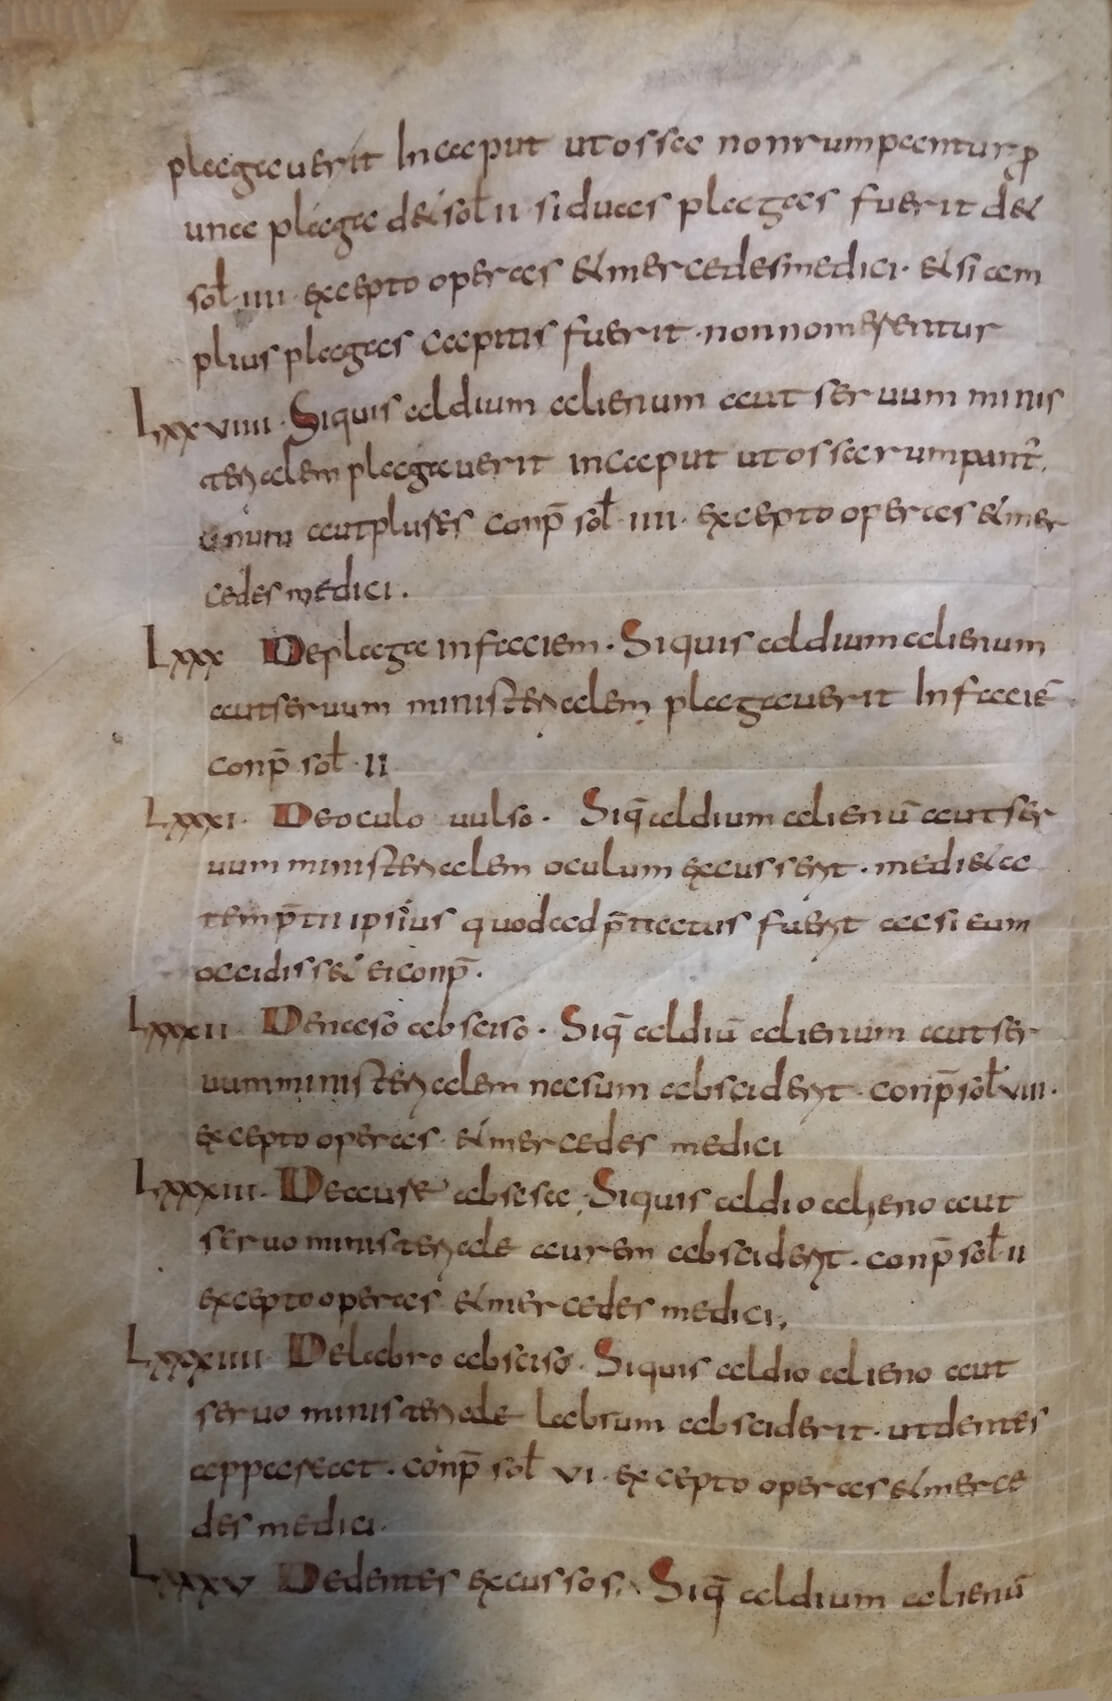 plagauerit In caput ut ossa non rumpantur ꝓ
una plaga det sol̄ II · si duas plagas fuerit det
sol̄ · IIII · excepto operas et mercedes medici · et si am
plius plagas capitis fuerit · non nomerentur
LXXVIIII · Siquis aldium alienum aut seruum minis
terialem plagauerit in caput ut ossa rumpant̄ ·
unum aut plures conp̄ sol̄ · IIII · excepto operas et mer
cedes medici ·
LXXX De plaga in faciem · Siquis aldium alienum
aut seruum ministerialem plagauerit In faciē
conp̄ sol̄ · II
LXXXI · De oculo uulso · Siq̄ aldium alienū aut ser
uum ministerialem oculum excusserit · medieta
tem p̄tii ipsius quod adp̄tiatus fuerit ac si eum
occidisset ei conp̄ ·
LXXXII · De naso absciso · Siq̄ aldiū alienum aut ser
uum ministerialem nasum absciderit · conp̄ sol̄ VIII ·
excepto operas · et mercedes medici
LXXXIII · De aure abscisa · Siquis aldio alieno aut
seruo ministeriale aurem absciderit · conp̄ sol̄ · II
excepto operas et mercedes medici ·
LXXXIIII · De labro absciso · Siquis aldio alieno aut
seruo ministeriale labrum absciderit · ut dentes
appareat · conp̄ sol̄ VI · excepto operas et merce
des medici ·
LXXXV De dentes excussos · Siq̄ aldium alienū